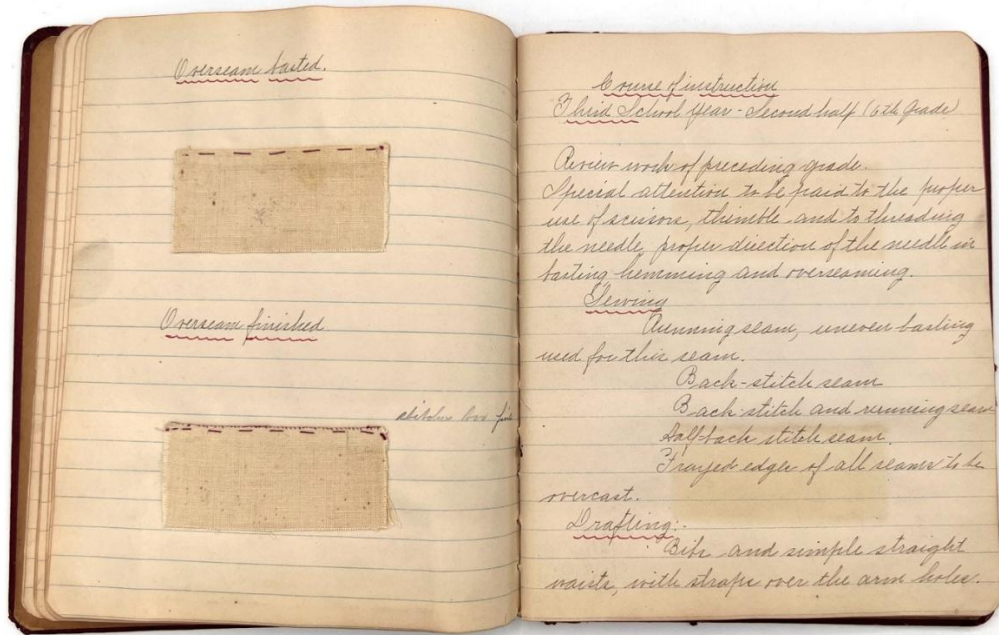 Overseam basted.
Overseam finished
stitches too
Course of instruction
Third School Year - Second half (6th Grade)
Review work of preceding grade.
Special attention to be paid to the proper
use of scissors, thimble and to threading
the needle, proper direction of the needle in
basting hemming and overseaming.
Sewing
Running seam, uneven basting
used for this seam.
Back-stitch seam
Back-stitch and running seam
Half-back stitch seam.
Frayed edges of all seams to be
overcast.
Drafting:-
Bibs and simple straight
waists, with straps over the arm holes.